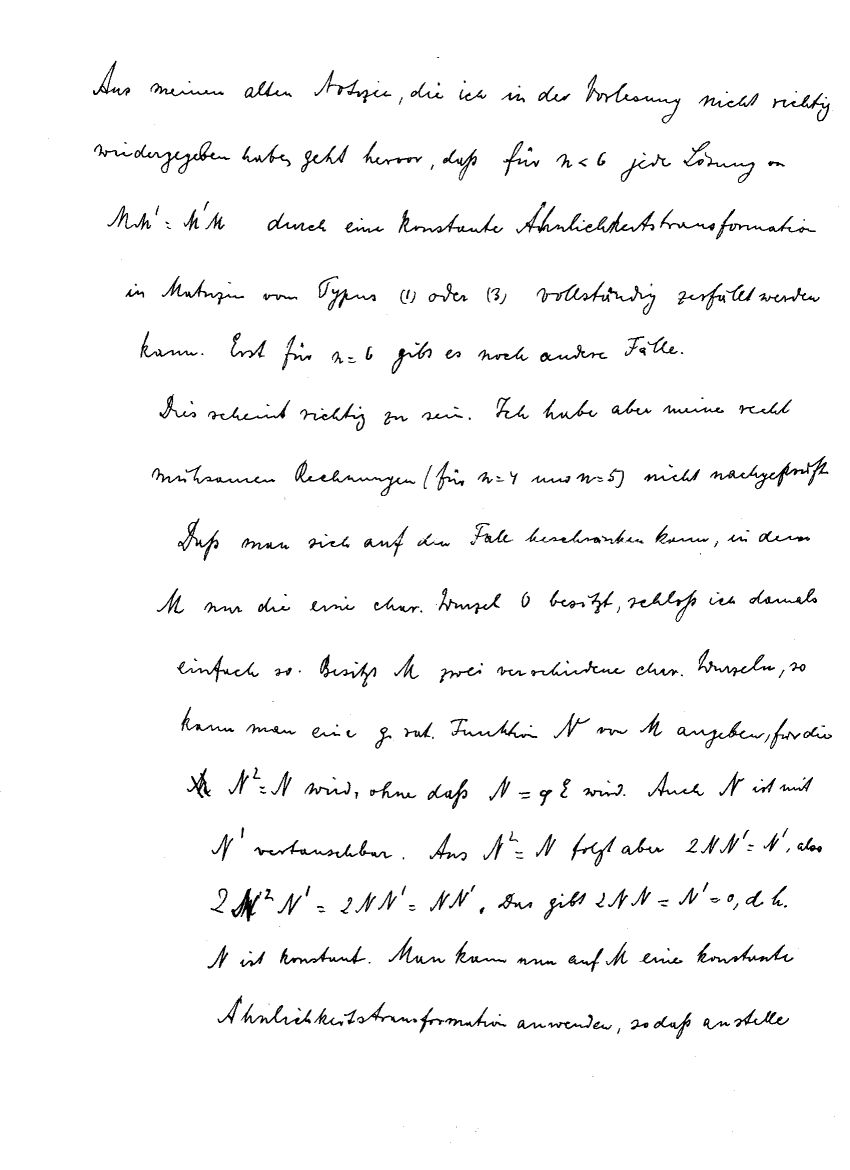 Aus meinen alten Notizen, die ich in der Vorlesung nicht richtig
wiedergegeben habe, geht hervor, daß für n < 6 jede Lösung von
MM' = M'M durch eine konstante Ähnlichkeitstransformation
in Matrizen vom Typus (1) oder (3) vollständig zerfällt werden
kann. Erst für n = 6 gibt es noch andere Fälle.
Dies scheint richtig zu sein. Ich habe aber meine recht
mühsamen Rechnungen (für n = 4 und n = 5) nicht nachgeprüft
Daß man sich auf den Fall beschränken kann, in dem
M nur die eine char. Wurzel 0 besitzt, schloß ich damals
einfach so. Besitzt M zwei verschiedene char. Wurzeln, so
kann man eine g. rat. Funktion N von M angeben, für die
N² = N wird, ohne daß N = φ E wird. Auch N ist mit
N' vertauschbar. Aus N² = N folgt aber 2NN' = N', also
2N²N' = 2NN' = NN'. Das gibt 2NN = N' = 0, d. h.
N ist konstant. Man kann nun auf M eine konstante
Ähnlichkeitstransformation anwenden, so daß an stelle